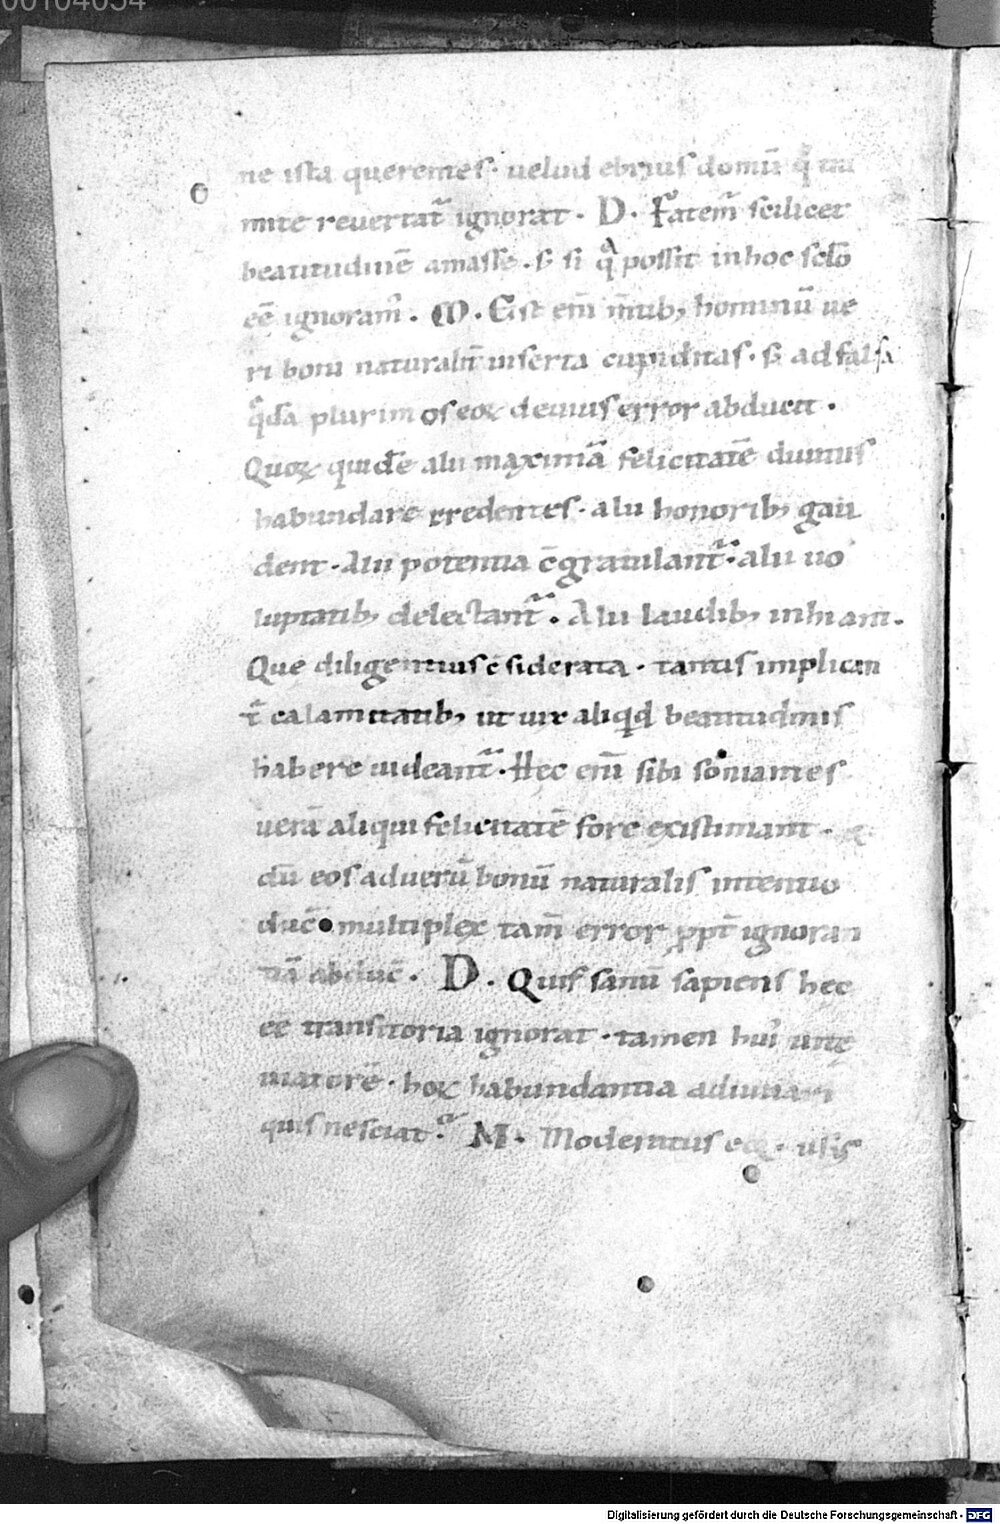 00104054
ne ista querentes · uelud ebrius domū q̊ tra
mite reuertat᷑ ignorat · D · Fatem᷑ scilicet
beatitudinē amasse · ſ; si q̄ possit in hoc sclo
eē ignoram᷑ · M · Est eni m̄tib; hominū ue
ri boni naturalit̄ inserta cupiditas · ſ; ad falsa
q̄dā plurimos eoꝝ deuius error abducit ·
Quoꝝ quidē alii maximā felicitatē diuitiis
habundare credentes · alii honorib; gau
dent · Alii potentia c̄gratulant᷑ · alii uo
luptatib; delectant᷑ · Alii laudib; inhiant ·
Que diligentius c̄siderata · tantis implican
t᷑ calamitatib; ut uix aliqid beatitudinis
habere uideant᷑ · Hec eni sibi somantes
uerā aliqui felicitatē fore existimant ·
dū eos ad uerū bonū naturalis intentio
duc̄ · multiplex tam̄ error ꝓpt̄ ignoran
tiā abduc̄ · D · Quis sanū sapiens hec
eē transitoria ignorat · tamen hui᷑ uitę
maiorē · hoꝝ habundantia adiuuari
quis nesciat · M · Moderatus eoꝝ · usus
Digitalisierung gefördert durch die Deutsche Forschungsgemeinschaft - DFG